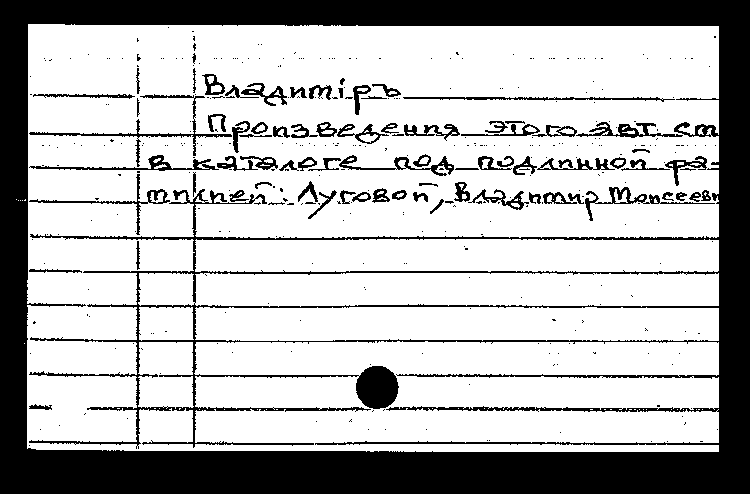 Владимiръ
Произведения этого авт. ст
в каталоге под подлинной фа-
милией: Луговой, Владимир Моисеевич